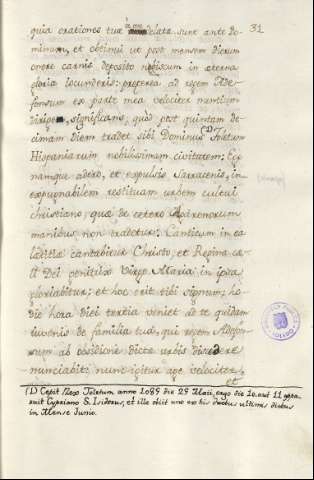 31
quia orationes tuæ delatæ sunt ante Do-
minum, et obtinui ut post mensem dierum
onere carnis deposito nobiscum in æterna
gloria jocunderis: preterea ad regem Ade-
fonsum ex parte mea velociter nuntium
dirige, significans, quod post quintam de-
cimam diem tradet sibi Dominus (1) Toletum
Hispaniarum nobilissimam civitatem: Ego
namque adero, et expulsis Sarracenis, in-
expugnabilem restituam urbem cultui
christiano, quæ de cetero Agarenorum
manibus non tradetur. Canticum in ea
lætitiæ cantabitur Christo, et Regina cæ-
li Dei Genitrix Virgo Maria in ipsa
gloriabitur; et hoc erit tibi signum; ho-
die hora diei tertia veniet ad te quidam
iuvenis de familia tua, qui regem Adefon-
sum ab obsidione dictæ urbis re
nunciabit: nunc igitur age velociter,
et
(1) Cepit Rex Toletum anno 1085 die 25 Maii, ergo die 10. aut 11 appa-
ruit Cypriano S. Isidorus, et ille obiit uno ex his duobus ultimis diebus
in Mense Junio.